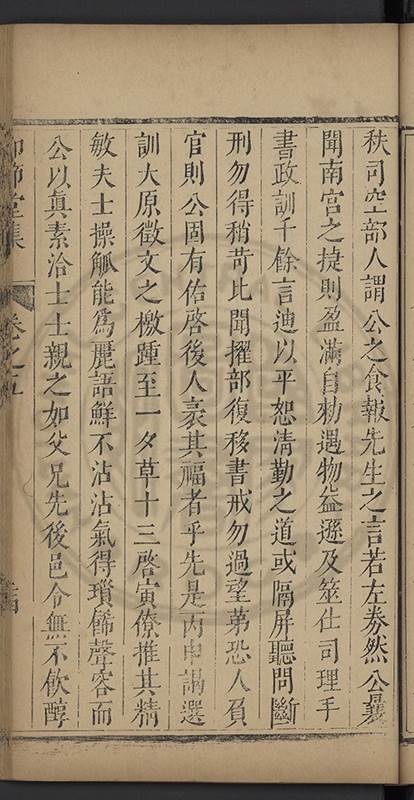 秩司空部人謂公之食報先生之言若左券然公曩
聞南宮之捷則盈滿自勑遇物益遜及筮仕司理手
書政訓千餘言迪以平恕清勤之道或隔屏聽問斷
刑勿得稍苛比聞擢部復移書戒勿過望第恐人負
官則公固有佑啓後人衷其福者乎先是丙申謁選
訓大原徵文之檄踵至一夕草十三啓寅僚推其精
敏夫士操觚能爲麗語鮮不沾沾氣得瑣篩聲容而
公以眞素洽士士親之如父兄先後邑令無不飲醇
卷之五